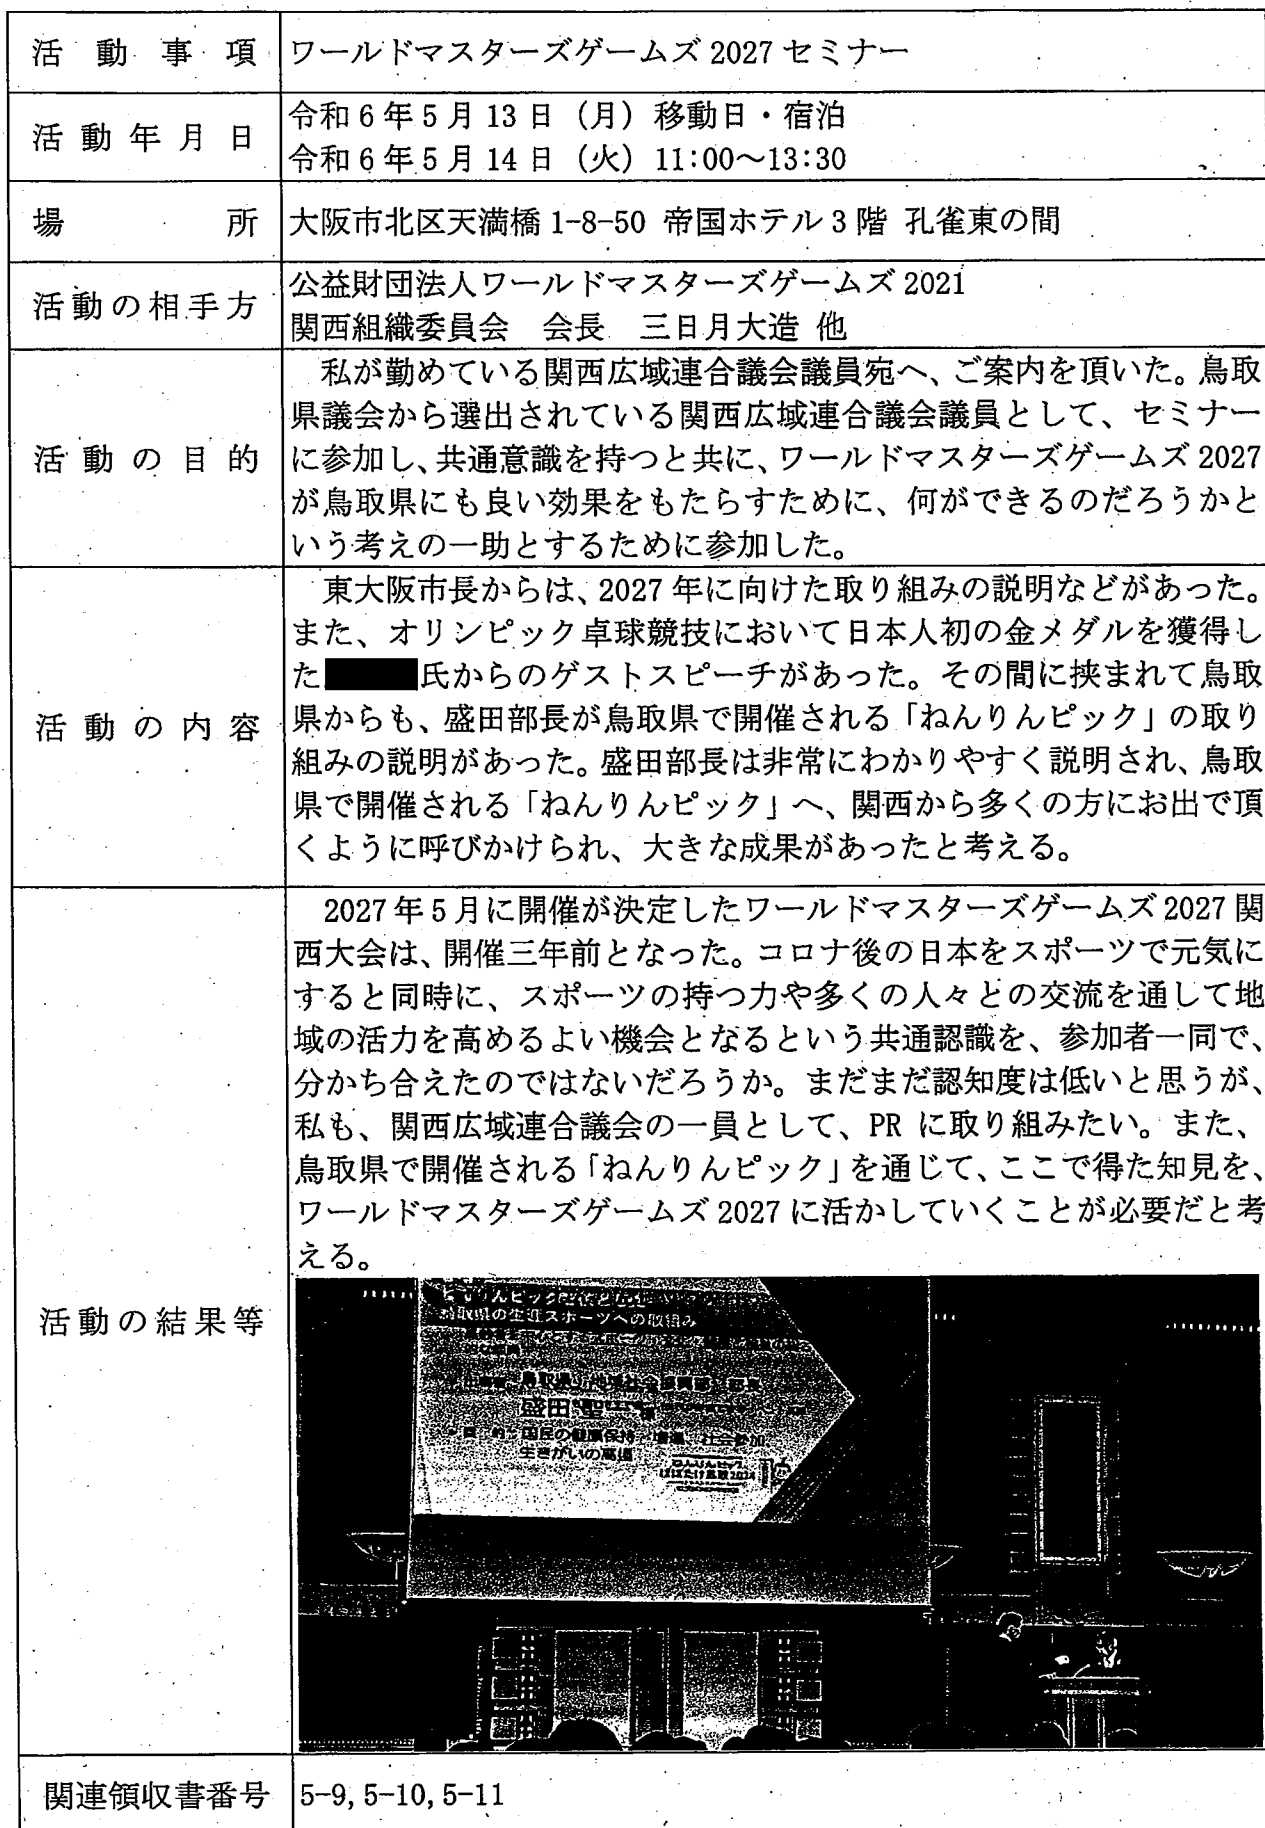 活動事項
ワールドマスターズゲームズ 2027 セミナー
活動年月日
令和6年5月13日（月）移動日・宿泊
令和6年5月14日（火）11:00～13:30
場所
大阪市北区天満橋 1-8-50 帝国ホテル3階 孔雀東の間
活動の相手方
公益財団法人ワールドマスターズゲームズ 2021
関西組織委員会　会長　三日月大造 他
活動の目的
私が勤めている関西広域連合議会議員宛へ、ご案内を頂いた。鳥取
県議会から選出されている関西広域連合議会議員として、セミナー
に参加し、共通意識を持つと共に、ワールドマスターズゲームズ 2027
が鳥取県にも良い効果をもたらすために、何ができるのだろうかと
いう考えの一助とするために参加した。
活動の内容
東大阪市長からは、2027年に向けた取り組みの説明などがあった。
また、オリンピック卓球競技において日本人初の金メダルを獲得し
た
氏からのゲストスピーチがあった。その間に挟まれて鳥取
県からも、盛田部長が鳥取県で開催される「ねんりんピック」の取り
組みの説明があった。盛田部長は非常にわかりやすく説明され、鳥取
県で開催される「ねんりんピック」へ、関西から多くの方にお出で頂
くように呼びかけられ、大きな成果があったと考える。
活動の結果等
2027年5月に開催が決定したワールドマスターズゲームズ 2027 関
西大会は、開催三年前となった。コロナ後の日本をスポーツで元気に
すると同時に、スポーツの持つ力や多くの人々との交流を通して地
域の活力を高めるよい機会となるという共通認識を、参加者一同で、
分かち合えたのではないだろうか。まだまだ認知度は低いと思うが、
私も、関西広域連合議会の一員として、PR に取り組みたい。また、
鳥取県で開催される「ねんりんピック」を通じて、ここで得た知見を、
ワールドマスターズゲームズ 2027 に活かしていくことが必要だと考
える。
鳥取県の生涯スポーツへの取組み
盛田聖一
国民の健康保持・増進、社会参加、
生きがいの高揚
ねんりんピック
はばたけ鳥取2024
関連領収書番号
5-9, 5-10, 5-11